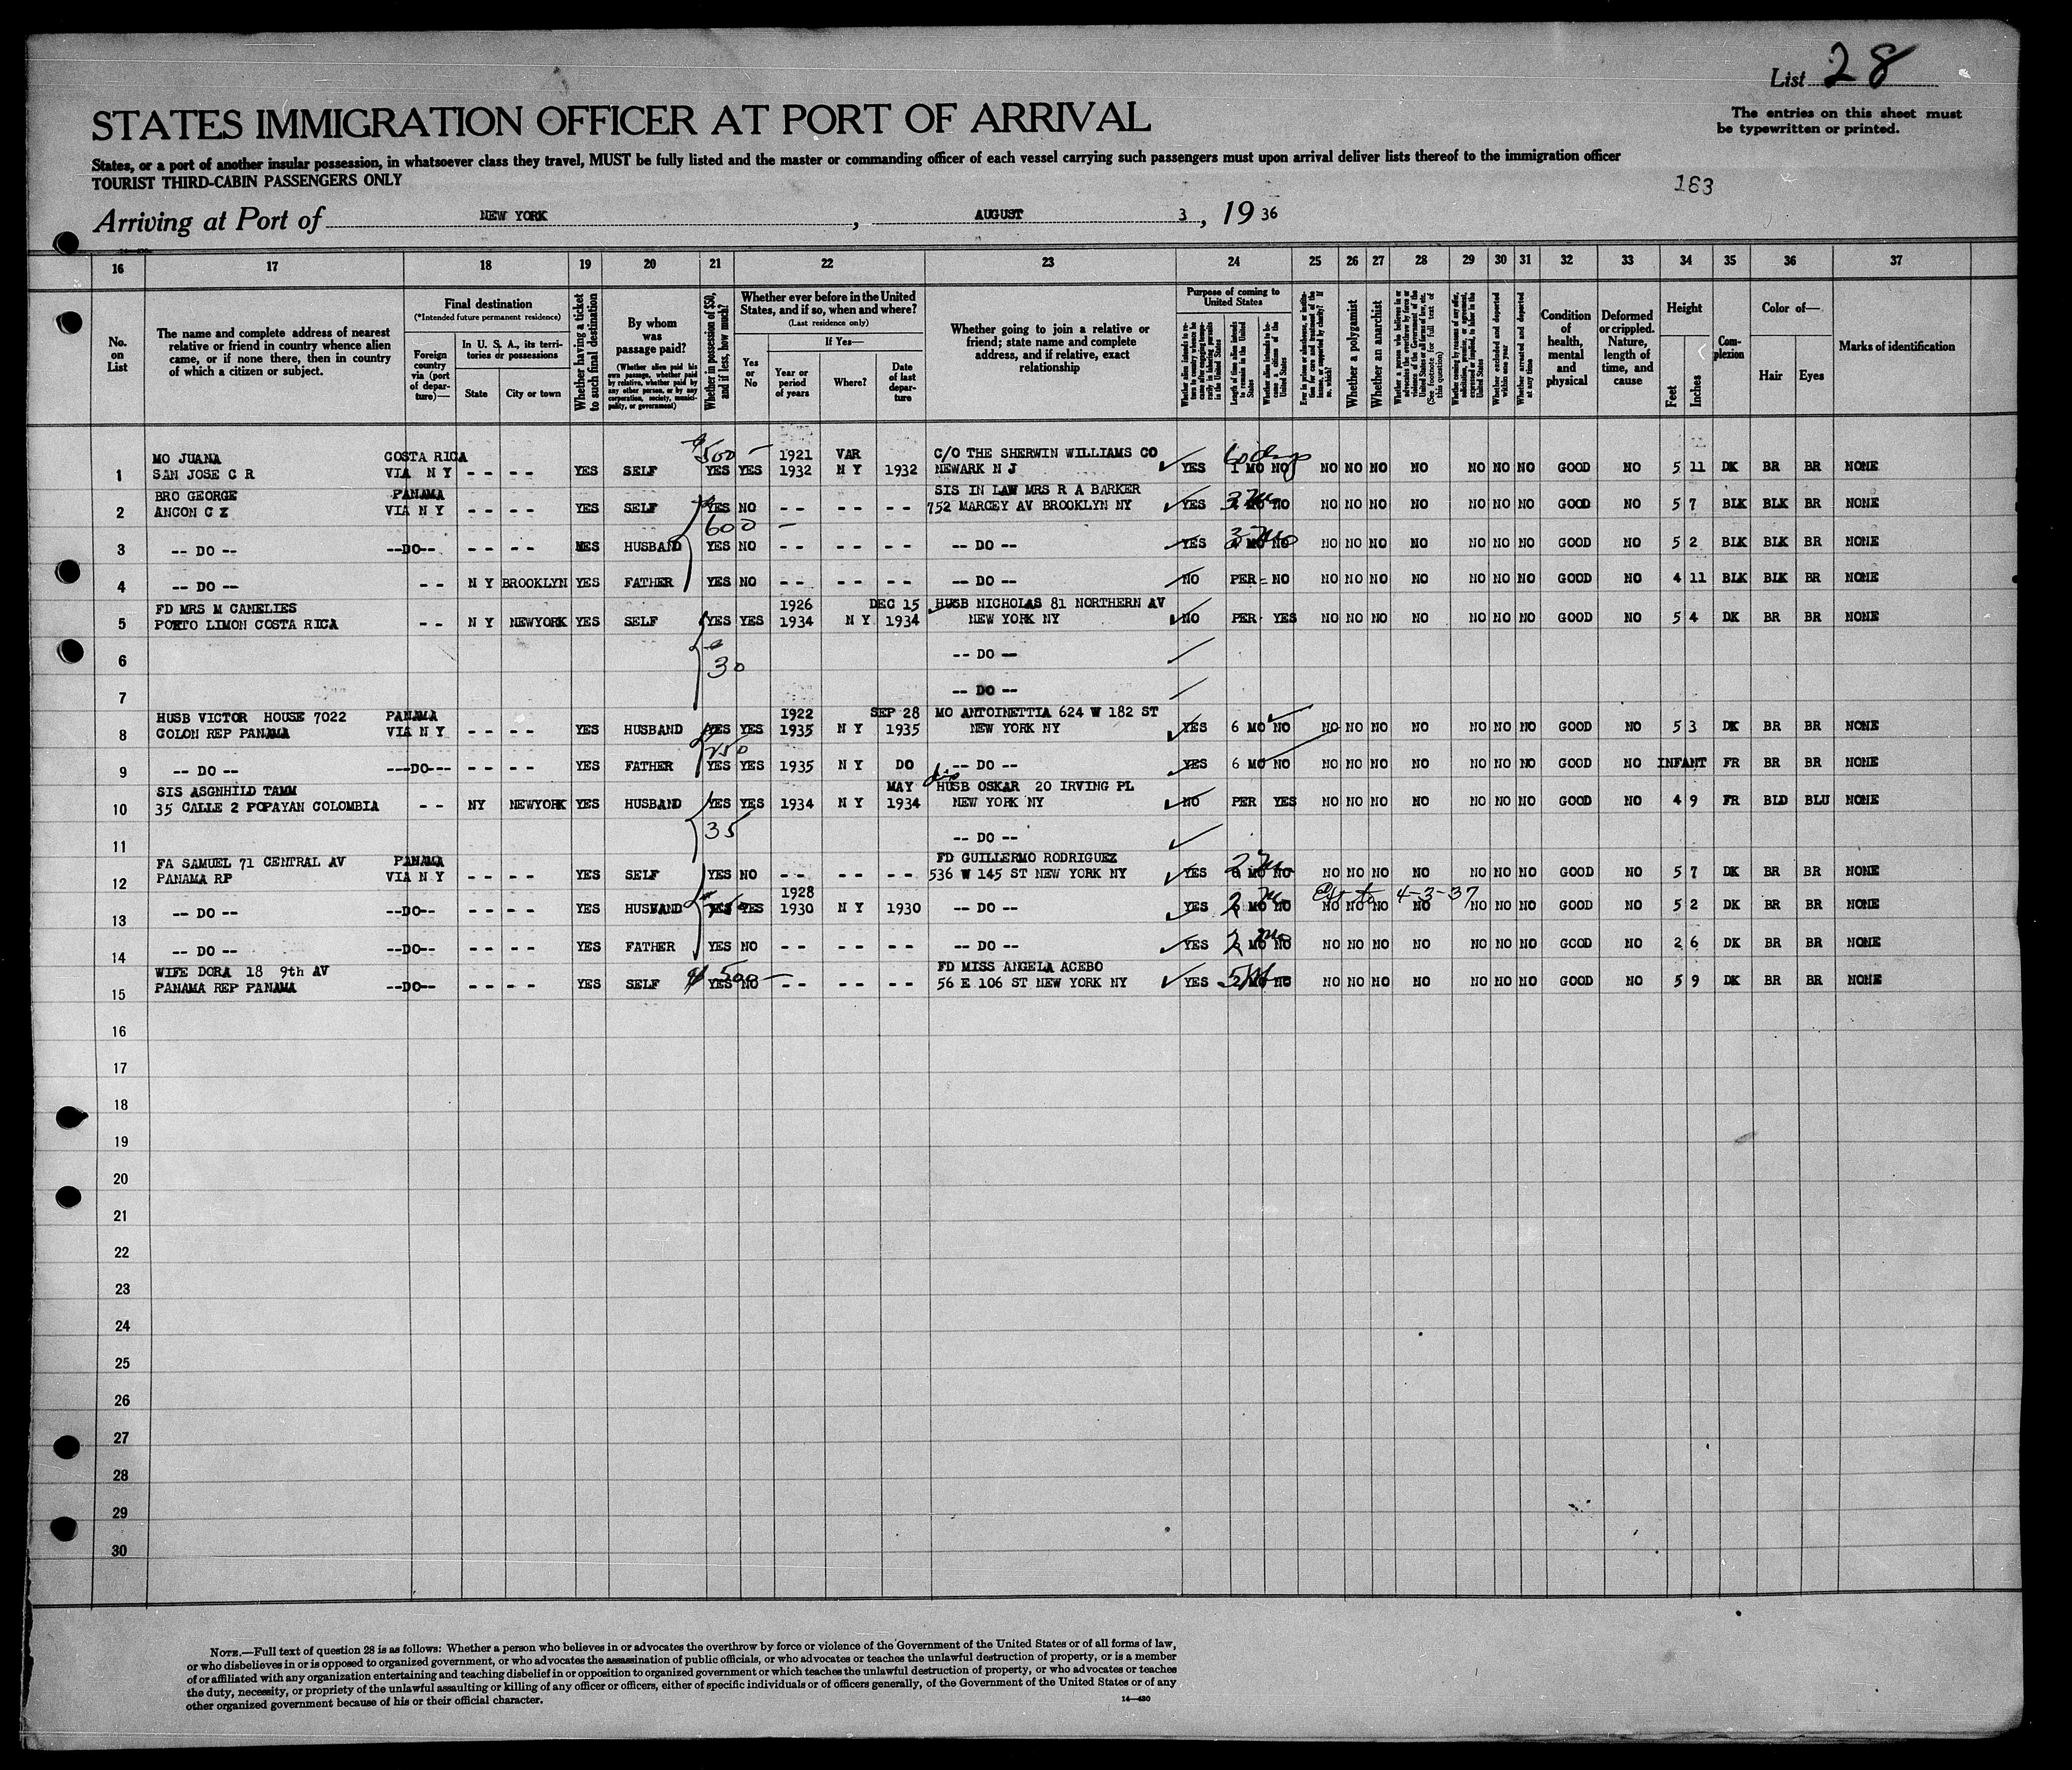 List 28
The entries on this sheet must
be typewritten or printed.
STATES IMMIGRATION OFFICER AT PORT OF ARRIVAL
States, or a port of another insular possession, in whatsoever class they travel, MUST be fully listed and the master or commanding officer of each vessel carrying such passengers must upon arrival deliver lists thereof to the immigration officer
TOURIST THIRD-CABIN PASSENGERS ONLY
163
Arriving at Port of NEW YORK, AUGUST 3, 19 36
16 17 18 19 20 21 22 23 24 25 26 27 28 29 30 31 32 33 34 35 36 37
No. on List
The name and complete address of nearest relative or friend in country whence alien came, or if none there, then in country of which a citizen or subject.
Final destination
(*Intended future permanent residence)
Foreign country via (port of departure)—
In U. S. A., its territories or possessions
State
City or town
Whether having a ticket to such final destination
By whom was passage paid?
(Whether alien paid his own passage, whether paid by relative, whether paid by any other person, or by any corporation, society, municipality, or government)
Whether in possession of $50, and if less, how much?
Whether ever before in the United States, and if so, when and where?
(Last residence only)
Yes or No
If Yes—
Year or period of years
Where?
Date of last departure
Whether going to join a relative or friend; state name and complete address, and if relative, exact relationship
Purpose of coming to United States
Length of time alien intends to remain in the United States
Whether alien intends to become a citizen of the United States
Whether a polygamist
Whether an anarchist
(See footnote for full text of this question)
Whether excluded and deported within one year
Whether arrested and deported at any time
Condition of health, mental and physical
Deformed or crippled. Nature, length of time, and cause
Height
Feet
Inches
Complexion
Color of—
Hair
Eyes
Marks of identification
MO JUANA COSTA RICA 500 — 1921 VAR C/O THE SHERWIN WILLIAMS CO 60 days
1 SAN JOSE C R VIA N Y - - - - YES SELF YES YES 1932 N Y 1932 NEWARK N J YES 1 MO NO NO NO NO NO NO NO NO GOOD NO 5 11 DK BR BR NONE
BRO GEORGE PANAMA SIS IN LAW MRS R A BARKER
2 ANCON C Z VIA N Y - - - - YES SELF YES NO - - - - - - 752 MARCEY AV BROOKLYN NY YES MO NO NO NO NO NO NO NO NO GOOD NO 5 7 BLK BLK BR NONE
600 —
3 -- DO -- --DO-- - - - - YES HUSBAND YES NO - - - - - - -- DO -- YES MO NO NO NO NO NO NO NO NO GOOD NO 5 2 BLK BLK BR NONE
4 -- DO -- - - N Y BROOKLYN YES FATHER YES NO - - - - - - -- DO -- NO PER - NO NO NO NO NO NO NO NO GOOD NO 4 11 BLK BLK BR NONE
FD MRS M CAMELIES 1926 DEC 15 HUSB NICHOLAS 81 NORTHERN AV
5 PORTO LIMON COSTA RICA - - N Y NEWYORK YES SELF YES YES 1934 N Y 1934 NEW YORK NY NO PER YES NO NO NO NO NO NO NO GOOD NO 5 4 DK BR BR NONE
6 30 -- DO --
7 -- DO --
HUSB VICTOR HOUSE 7022 PANAMA 1922 SEP 28 MO ANTOINETTIA 624 W 182 ST
8 COLON REP PANAMA VIA N Y - - - - YES HUSBAND YES YES 1935 N Y 1935 NEW YORK NY YES 6 MO NO NO NO NO NO NO NO NO GOOD NO 5 3 DK BR BR NONE
250
9 -- DO -- ---DO--- - - - - YES FATHER YES YES 1935 N Y DO -- DO -- YES 6 MO NO NO NO NO NO NO NO NO GOOD NO INFANT FR BR BR NONE
SIS ASGNHILD TAMM MAY HUSB OSKAR 20 IRVING PL
10 35 CALLE 2 POPAYAN COLOMBIA - - NY NEWYORK YES HUSBAND YES YES 1934 N Y 1934 NEW YORK NY NO PER YES NO NO NO NO NO NO NO GOOD NO 4 9 FR BLD BLU NONE
11 35 -- DO --
FA SAMUEL 71 CENTRAL AV PANAMA FD GUILLERMO RODRIGUEZ
12 PANAMA RP VIA N Y - - - - YES SELF YES NO - - - - - - 536 W 145 ST NEW YORK NY YES MO NO NO NO NO NO NO NO NO GOOD NO 5 7 DK BR BR NONE
1928 4-3-37
13 -- DO -- --DO-- - - - - YES HUSBAND YES YES 1930 N Y 1930 -- DO -- YES MO NO NO NO NO NO NO NO NO GOOD NO 5 2 DK BR BR NONE
14 -- DO -- --DO-- - - - - YES FATHER YES NO - - - - - - -- DO -- YES MO NO NO NO NO NO NO NO NO GOOD NO 2 6 DK BR BR NONE
WIFE DORA 18 9th AV $ 500 — FD MISS ANGELA ACEBO
15 PANAMA REP PANAMA --DO-- - - - - YES SELF YES NO - - - - - - 56 E 106 ST NEW YORK NY YES MO NO NO NO NO NO NO NO NO GOOD NO 5 9 DK BR BR NONE
16
17
18
19
20
21
22
23
24
25
26
27
28
29
30
NOTE.—Full text of question 28 is as follows: Whether a person who believes in or advocates the overthrow by force or violence of the Government of the United States or of all forms of law,
or who disbelieves in or is opposed to organized government, or who advocates the assassination of public officials, or who advocates or teaches the unlawful destruction of property, or is a member
of or affiliated with any organization entertaining and teaching disbelief in or opposition to organized government or which teaches the unlawful destruction of property, or who advocates or teaches
the duty, necessity, or propriety of the unlawful assaulting or killing of any officer or officers, either of specific individuals or of officers generally, of the Government of the United States or of any
other organized government because of his or their official character.
14—430